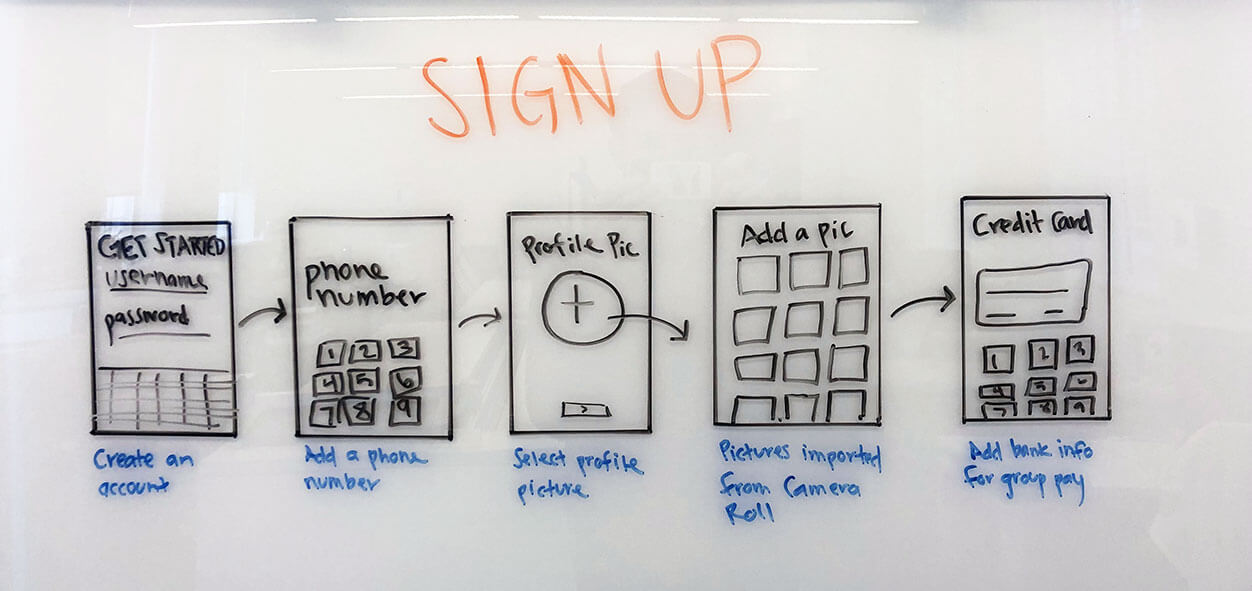 SIGN UP
GET STARTED
username
password
Create an
account
phone
number
1 2 3
4 5 6
7 8 9
Add a phone
number
Profile Pic
+
>
Select profile
picture
Add a pic
Pictures imported
from Camera
Roll
Credit Card
1 2 3
4 5 6
7 8 9
Add bank info
for group pay